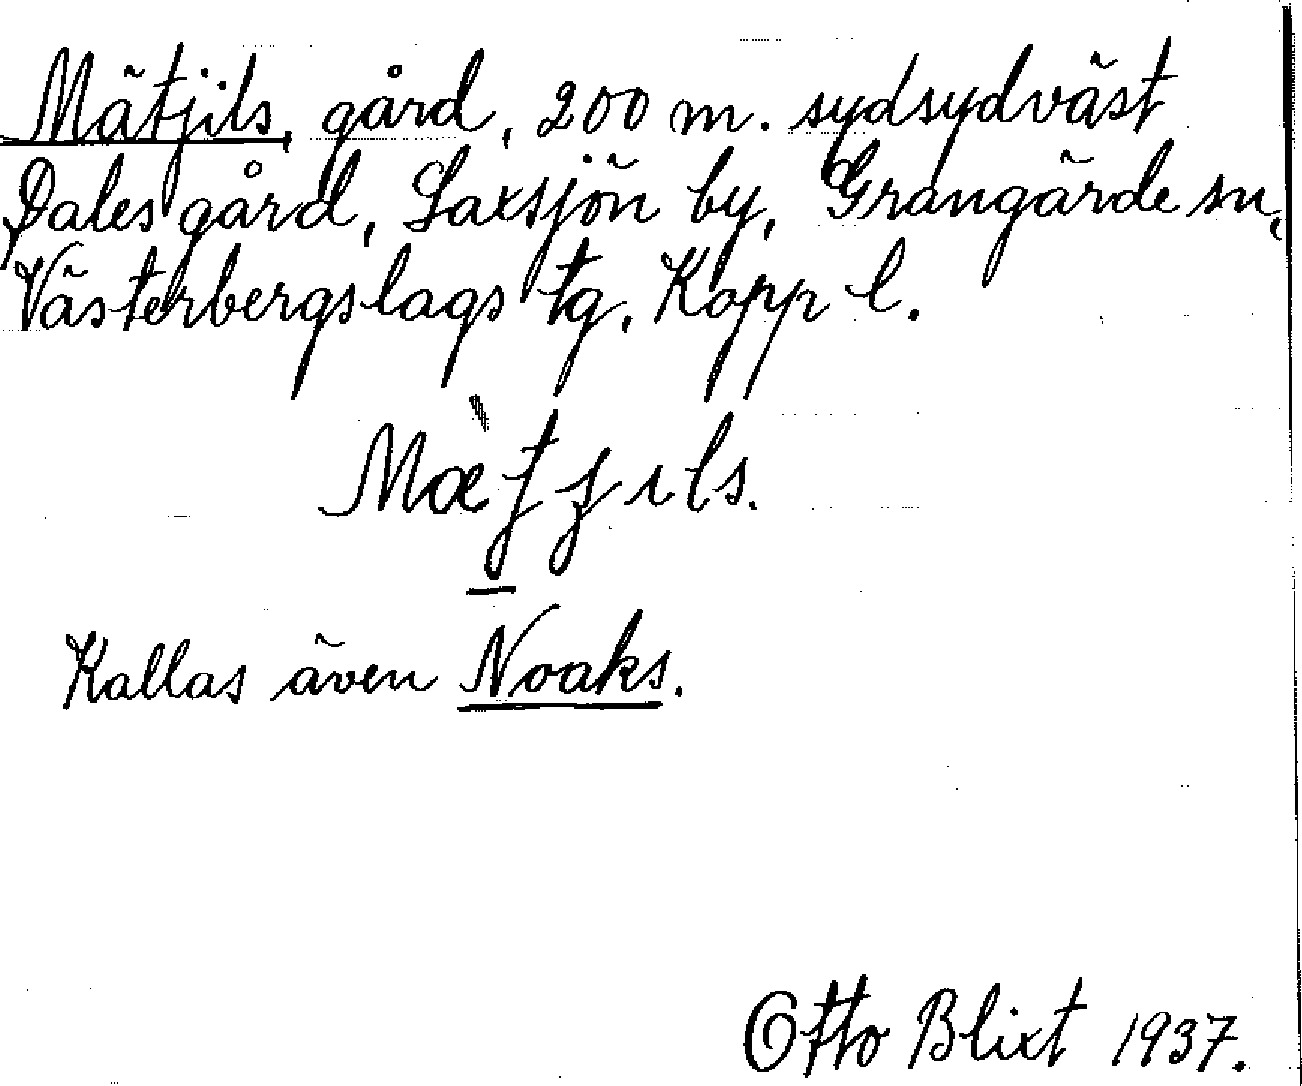 Mätjils, gård, 200 m. sydsydväst
Dales gård, Laxsjön by, Grangärde sn,
Västerbergslags tg, Kopp l.
Kallas även Noaks.
Otto Blixt 1937.